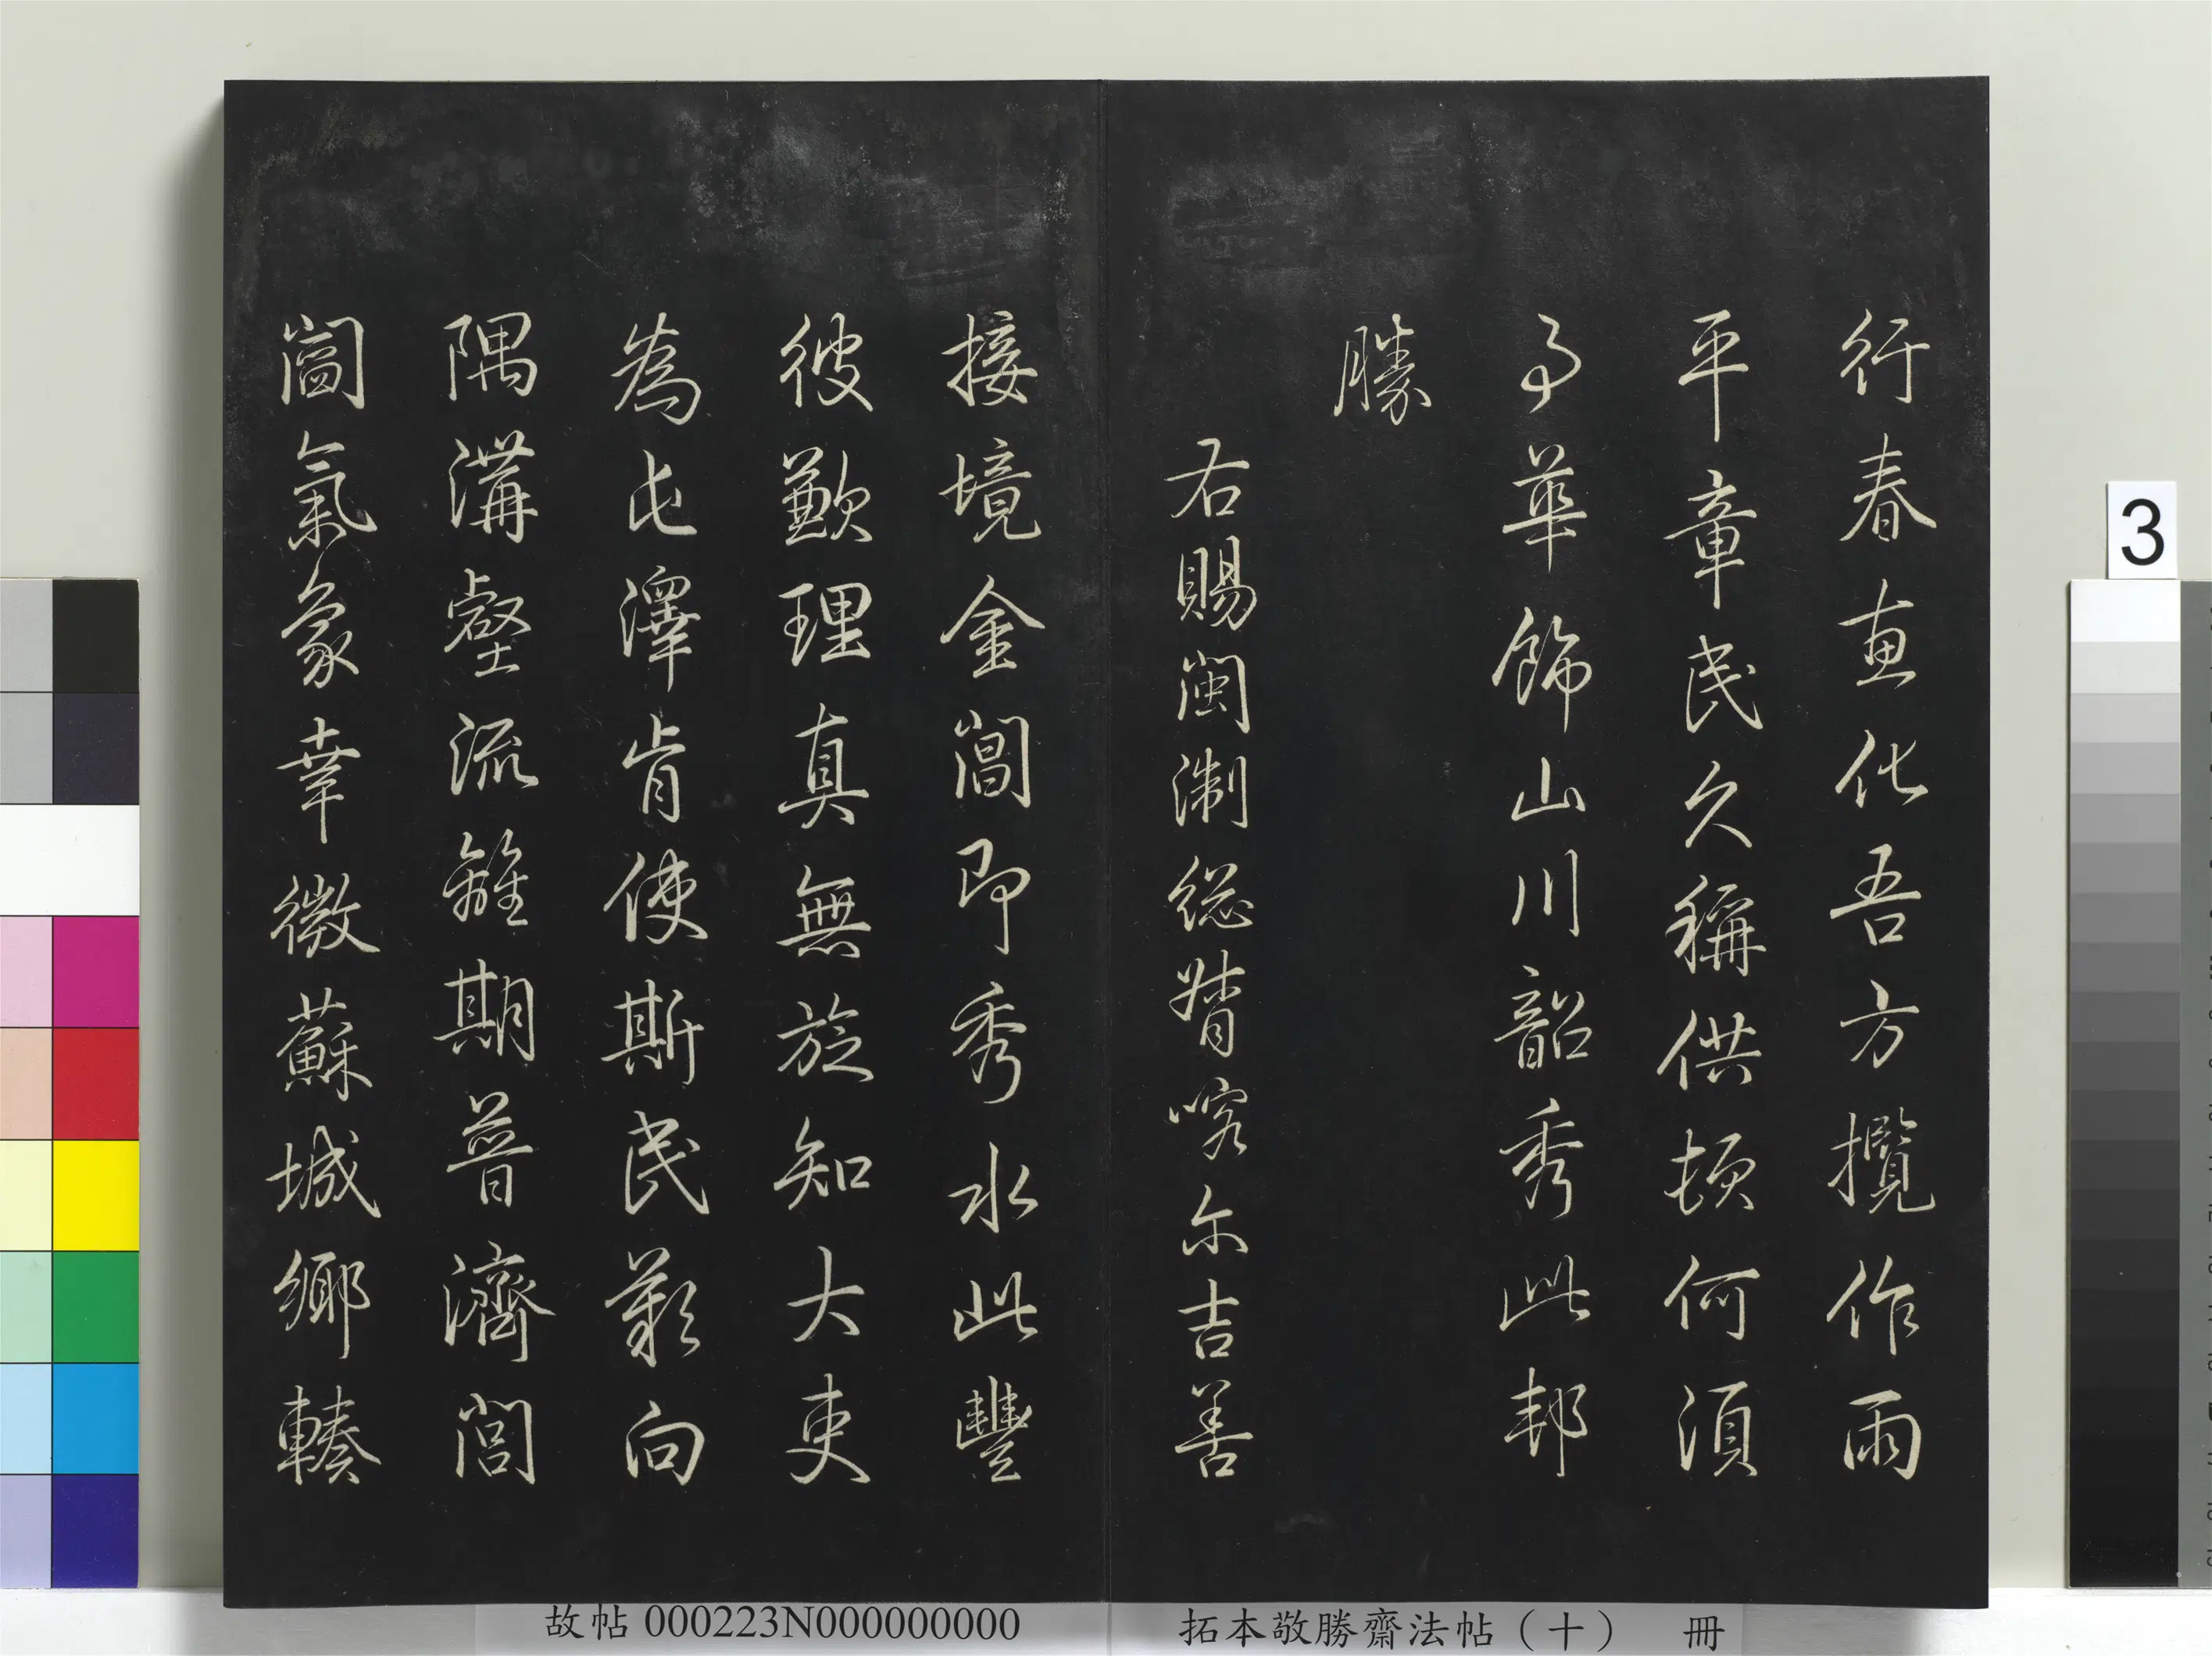 行春宣化吾方攬作雨
平章民久稱供頓何須
事華飾山川韶秀此邦
勝
右賜閩淛総督喀尓吉善
接境金閶即秀水此豐
彼歉理真無旋知大吏
為屯澤肯使斯民艱向
隅溝壑流離期普濟閭
閻氣象幸微蘇城鄉輳
故帖 000223N000000000
拓本敬勝齋法帖(十) 冊
3